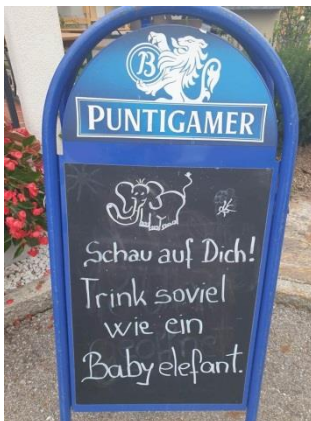 B
PUNTIGAMER
Schau auf Dich!
Trink soviel
wie ein
Babyelefant.